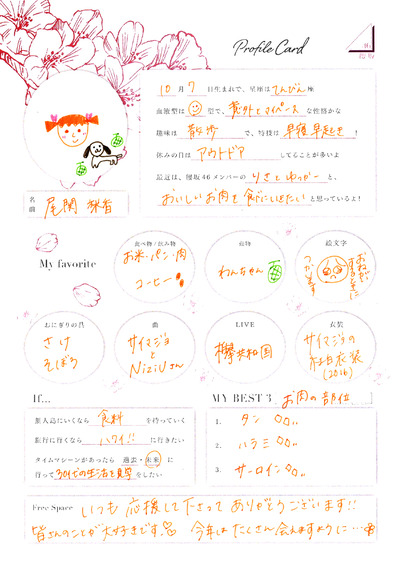 Profile Card
10月7日生まれで、星座はてんびん座
血液型は 型で、意外とマイペースな性格かな
趣味は散歩で、特技は早寝早起き！
休みの日はアウトドアしてることが多いよ
最近は、櫻坂46メンバーのりさとゆっかーと、
おいしいお肉を食べにいきたいと思っているよ！
名前 尾関 梨香
My favorite
食べ物/飲み物
お米・パン・肉
コーヒー
動物
わんちゃん
絵文字
おねがいします
つかいます
おにぎりの具
さけ
そぼろ
曲
サイマジョ
と
NiziUさん
LIVE
欅共和国
衣装
サイマジョの
紅白衣装
(2016)
If...
無人島にいくなら 食料 を持っていく
旅行に行くなら ハワイ!! に行きたい
タイムマシーンがあったら 過去・未来 に
行って 30代の生活を見学 をしたい
MY BEST 3 お肉の部位
1. タン
2. ハラミ
3. サーロイン
Free Space いつも応援して下さってありがとうございます!!
皆さんのことが大好きです 今年はたくさん会えますように…